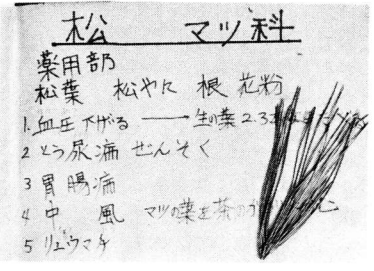 松 マツ科
薬用部
松葉 松やに 根 花粉
1. 血圧下がる → 生の葉 2.33
2 とう尿病 ぜんそく
3 胃腸病
4 中風 マツの葉を茶の
5 リュウマチ